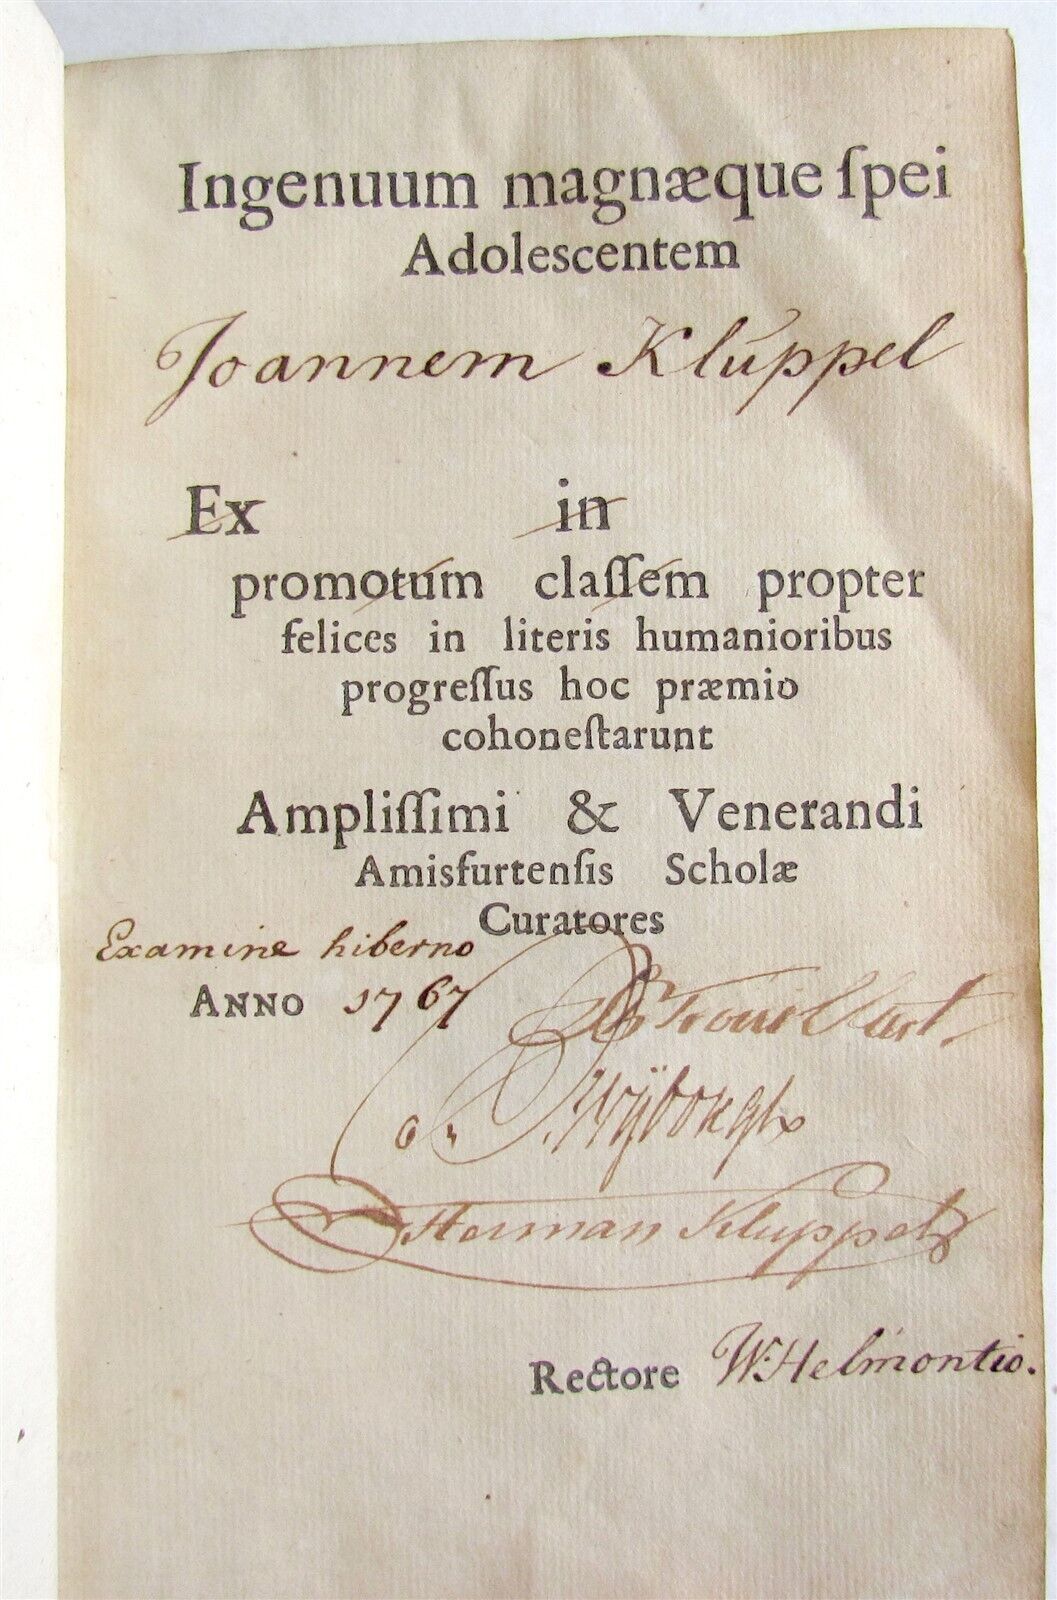 Ingenuum magnæque ſpei
Adolescentem
Joannem Kluppel
Ex in
promotum claſſem propter
felices in literis humanioribus
progreſſus hoc præmio
cohoneſtarunt
Ampliſſimi & Venerandi
Amisfurtenſis Scholæ
Curatores
Examine hiberno
ANNO 1767
Herman Kluppel
Rectore W. Helmontio.